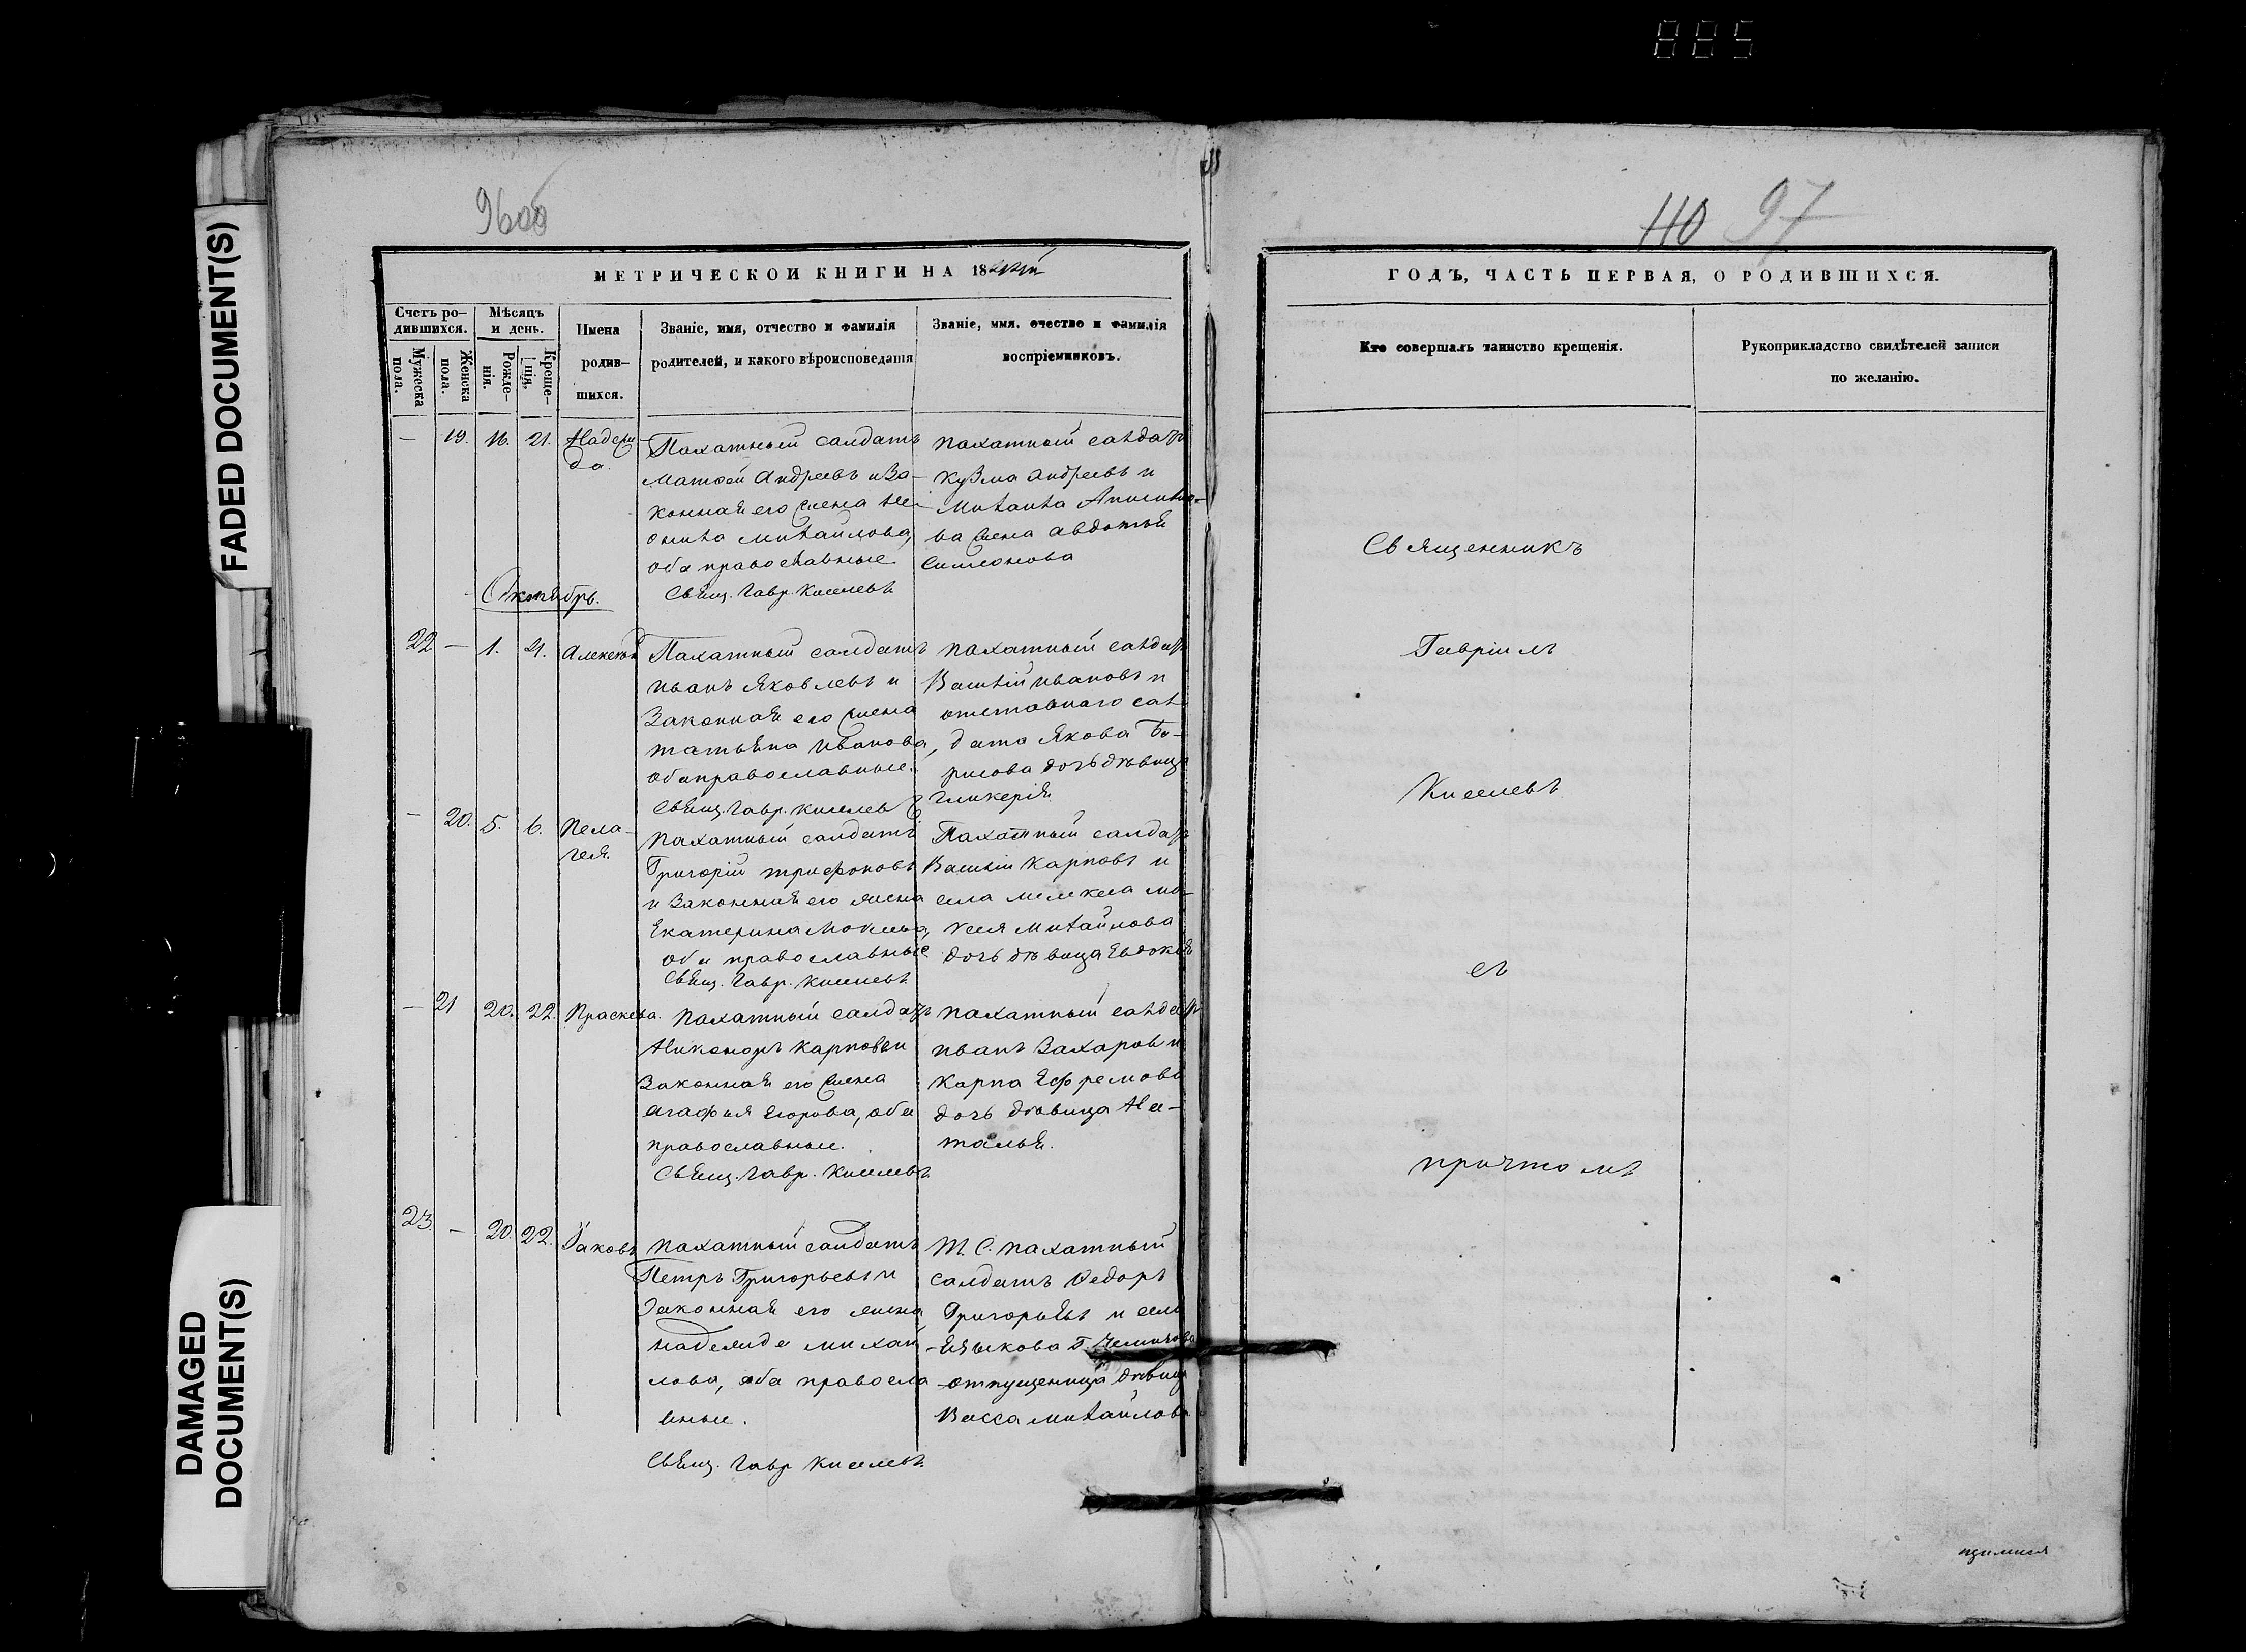 885
96об
110 97
МЕТРИЧЕСКОЙ КНИГИ НА 18
ГОДЪ, ЧАСТЬ ПЕРВАЯ, О РОДИВШИХСЯ.
Счетъ ро-
дившихся.
Мужеска
пола.
Женска
пола.
Мѣсяцъ
и день.
Рожде-
нія.
Креще-
нія.
Имена
родив-
шихся.
Званіе, имя, отчество и фамилія
родителей, и какого вѣроисповеданія
Званіе, имя. очество и фамилія
воспріемниковъ.
Кто совершалъ таинство крещенія.
Рукоприкладство свидѣтелей записи
по желанію.
— 19. 16. 21. Надеж
да.
Пахатный салдатъ
Матвей Андреевъ и за-
конная его жена
Михайлова,
оба православные
Свящ. Гавр. Киселевъ
пахатный салдатъ
Кузма Андреевъ и
Михаила
ва жена Авдотья
Симеонова
Октябрь.
22 — 1. 4. Алексей
Пахатный салдатъ
Иванъ Яковлевъ и
Законная его жена
Татьяна Иванова,
оба православные.
Свящ. Гавр. Киселевъ
пахатный салдатъ
Василій Ивановъ и
отставного сал
дата Якова Бо-
рисова дочь дѣвица
Гликерія.
— 20. 5. 6. Пела-
гея.
пахатный салдатъ
Григорій Трифоновъ
и Законная его жена
Екатерина
оба православные
Свящ. Гавр. Киселевъ
Пахатный салдатъ
Василій Карповъ и
села
Михайлова
дочь дѣвица Евдокія
— 21 20. 22. Праскева.
пахатный салдатъ
Никаноръ Карповъ и
Законная его жена
Агафья Егорова, оба
православные.
Свящ. Гавр. Киселевъ
пахатный салдатъ
Иванъ Захаровъ и
Карпа Ефремова
дочь дѣвица На-
талья.
23. — 20. 22. Іаковъ
пахатный салдатъ
Петръ Григорьевъ и
Законная его жена
Надежда Михай
лова, оба правосла
вные.
Свящ. Гавр Киселевъ
Т. С. пахатный
салдатъ Ѳедоръ
Григорьевъ и села
Языкова Г.
отпущеница дѣвица
Васса Михайлова
Священникъ
Гавріилъ
Киселевъ
съ
причтомъ